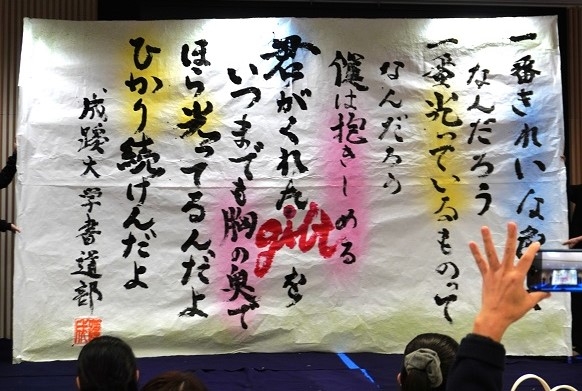 一番きれいな色
なんだろう
一番光っているものって
なんだろう
僕は抱きしめる
君がくれたgiftを
いつまでも胸の奥で
ほら光ってるんだよ
ひかり続けんだよ
成蹊大学書道部